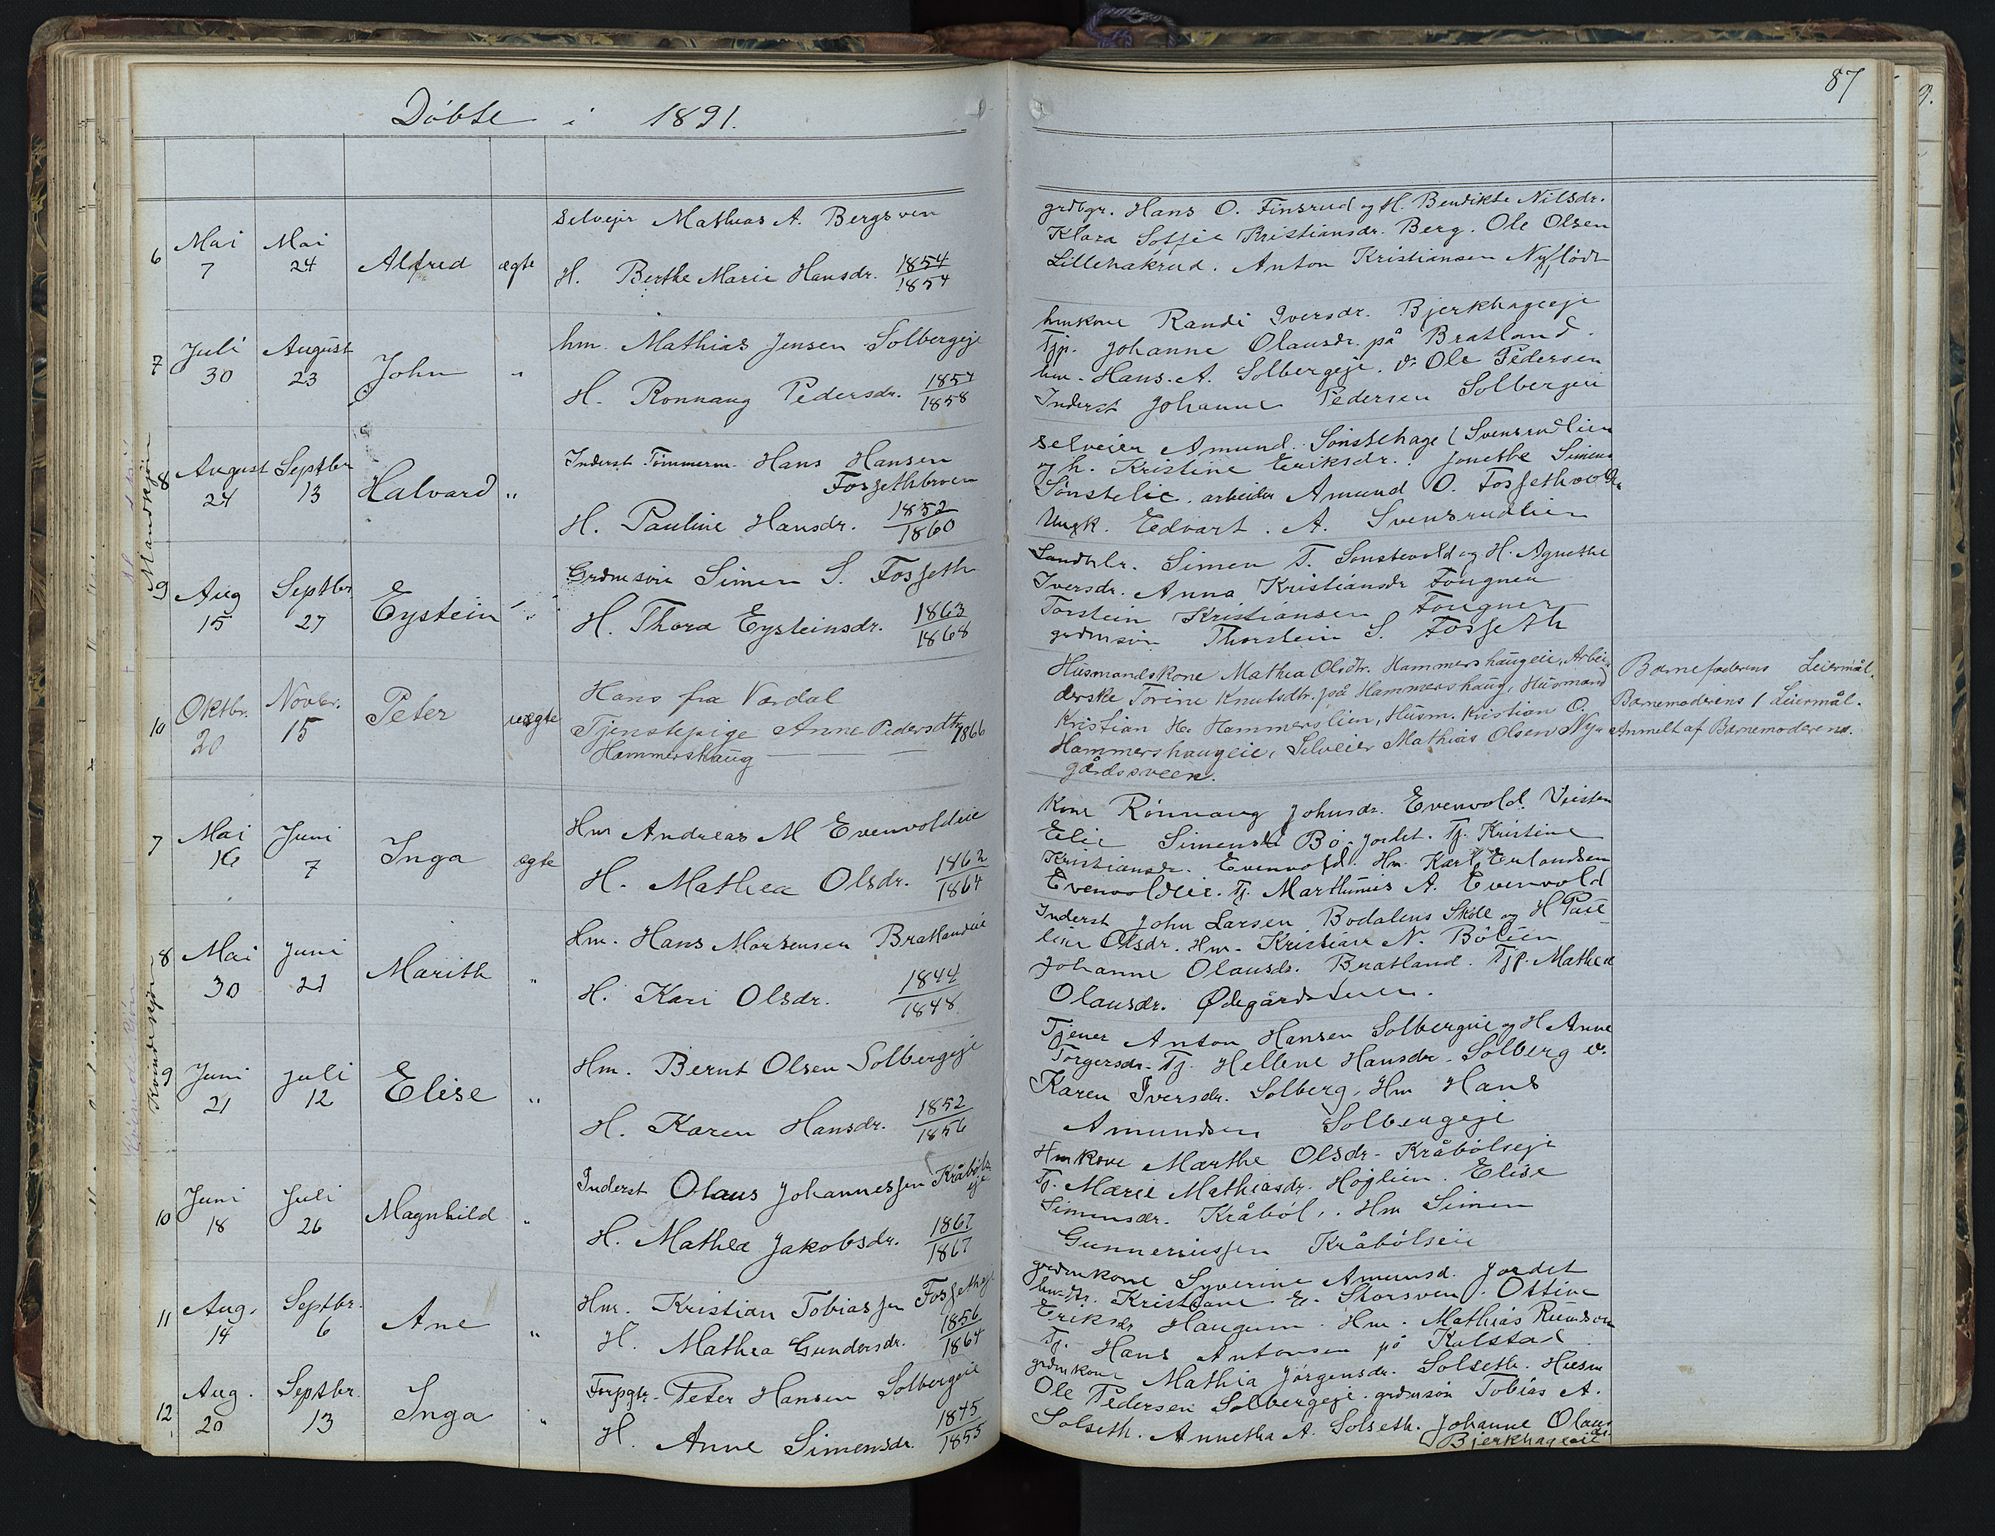 Døbte i 1891.
87
Mandkjøn
6 Mai 7 Mai 24 Alfred ægte
Selveier Mathias A. Bergsven
H. Berthe Marie Hansdr. 1854 1854
grdbgr. Hans O. Finsrud og H. Bendikte Nilsdr.
Klara Sofie Kristiansdr. Berg. Ole Olsen
Lillehakrud. Anton Kristiansen Nyflødt
7 Juli 30 August 23 John "
hm. Mathias Jensen Solbergeje
H. Ronnaug Pedersdr. 1857 1858
hmkone Randi Iversdr. Bjerkhageeje
Tjp. Johanne Olausdr. på Bratland.
hm. Hans A. Solbergeje. Ole Pedersen
Inderst Johanne Pedersen Solbergeie
8 August 24 Septbr 13 Halvard "
Inderst Tømmerm. Hans Hansen
Fossethbroen
H. Pauline Hansdr. 1852 1860
Selveier Amund Sønstehage (Svensrudlien
og h. Kristine Eriksdr. Jonethe Simens
Sønstelie. arbeider Amund O. Fossethvold
Ungk. Edvart A. Svensrudlien
9 Aug 15 Septbr 27 Eystein "
Grdmsøn Simen S. Fosseth
H. Thora Eysteinsdr. 1863 1868
Landhlr. Simen T. Sønstevold og H. Agnethe
Iversdr. Anna Kristiansdr Fougner
Torstein Kristiansen Fougner
grdmsøn Thorstein S. Fosseth
10 Oktbr. 20 Novbr. 15 Peter uægte
Hans fra Værdal
Tjenstepige Anne Pedersdtr 1866
Hammershaug
Husmandskone Mathea Olsdtr. Hammershaugeie, Arbei-
derske Torine Knutsdtr. på Hammershaug, Husmand
Kristian H. Hammerslien, Husm. Kristian O.
Hammershaugeie, Selveier Mathias Olsen Ny-
gårdssveen.
Barnefaderens Leiermål.
Barnemoderens 1 Leiermål.
Anmelt af Barnemoderens.
Kvindekjøn
7 Mai 16 Juni 7 Inga ægte
Hm Andreas M Evenvoldeie
H. Mathea Olsdr. 1862 1864
Kone Rønnaug Johnsdr. Evenvold.
Elie Simensd Bø-Jordet. Tj. Kristine
Kristiansdr. Evenvold. Hm. Karl Erlandsen
Evenvoldeie. Tj. Marthinus A. Evenvold
8 Mai 30 Juni 21 Marith "
Hm. Hans Mortensen Bratlandeie
H. Kari Olsdr. 1844 1848
Inderst John Larsen Bodalens Skole og H Pau-
line Olsdr. Hm. Kristian N. Bølien
Johanne Olausdr. Bratland. Tjp. Mathea
Olausdr. Ødegårdstuen.
9 Juni 21 Juli 12 Elise "
Hm. Bernt Olsen Solbergeje
H. Karen Hansdr. 1852 1856
Tjener Anton Hansen Solbergeie og H Anne
Torgersdr. Tj. Hellene Hansdr. Solberg
Karen Iversdr. Solberg, Hm Hans
Amundsen Solbergeje
10 Juni 18 Juli 26 Magnhild "
Inderst Olaus Johannessen Kråbøls
eje
H. Mathea Jakobsdr. 1867 1867
Hmkone Marthe Olsdr. Kråbølseje
Tj. Marie Mathiasdr. Høglien. Elise
Simensdr. Kråbøl, Hm Simen
Gunneriussen Kråbølseie
11 Aug. 14 Septbr. 6 Ane "
Hm. Kristian Tobiassen Fossetheje
H. Mathea Gundersdr. 1856 1864
grdmkone Syverine Amunsd. Jordet
Kristiane E. Storsven. Ottine
Eriksdr Haugum. Hm. Mathias
Tj. Hans Antonsen på Kalstad
12 Aug. 20 Septbr. 13 Inga "
Forpgtr. Peter Hansen Solbergeie
H. Anne Simensdr. 1845 1855
grdmkone Mathia Jørgensdr. Solseth. Husm
Ole Pedersen Solbergeje. grdmsøn Tobias A.
Solseth. Annetha A. Solseth. Johanne Olaus
dr.
Bjerkhageeie